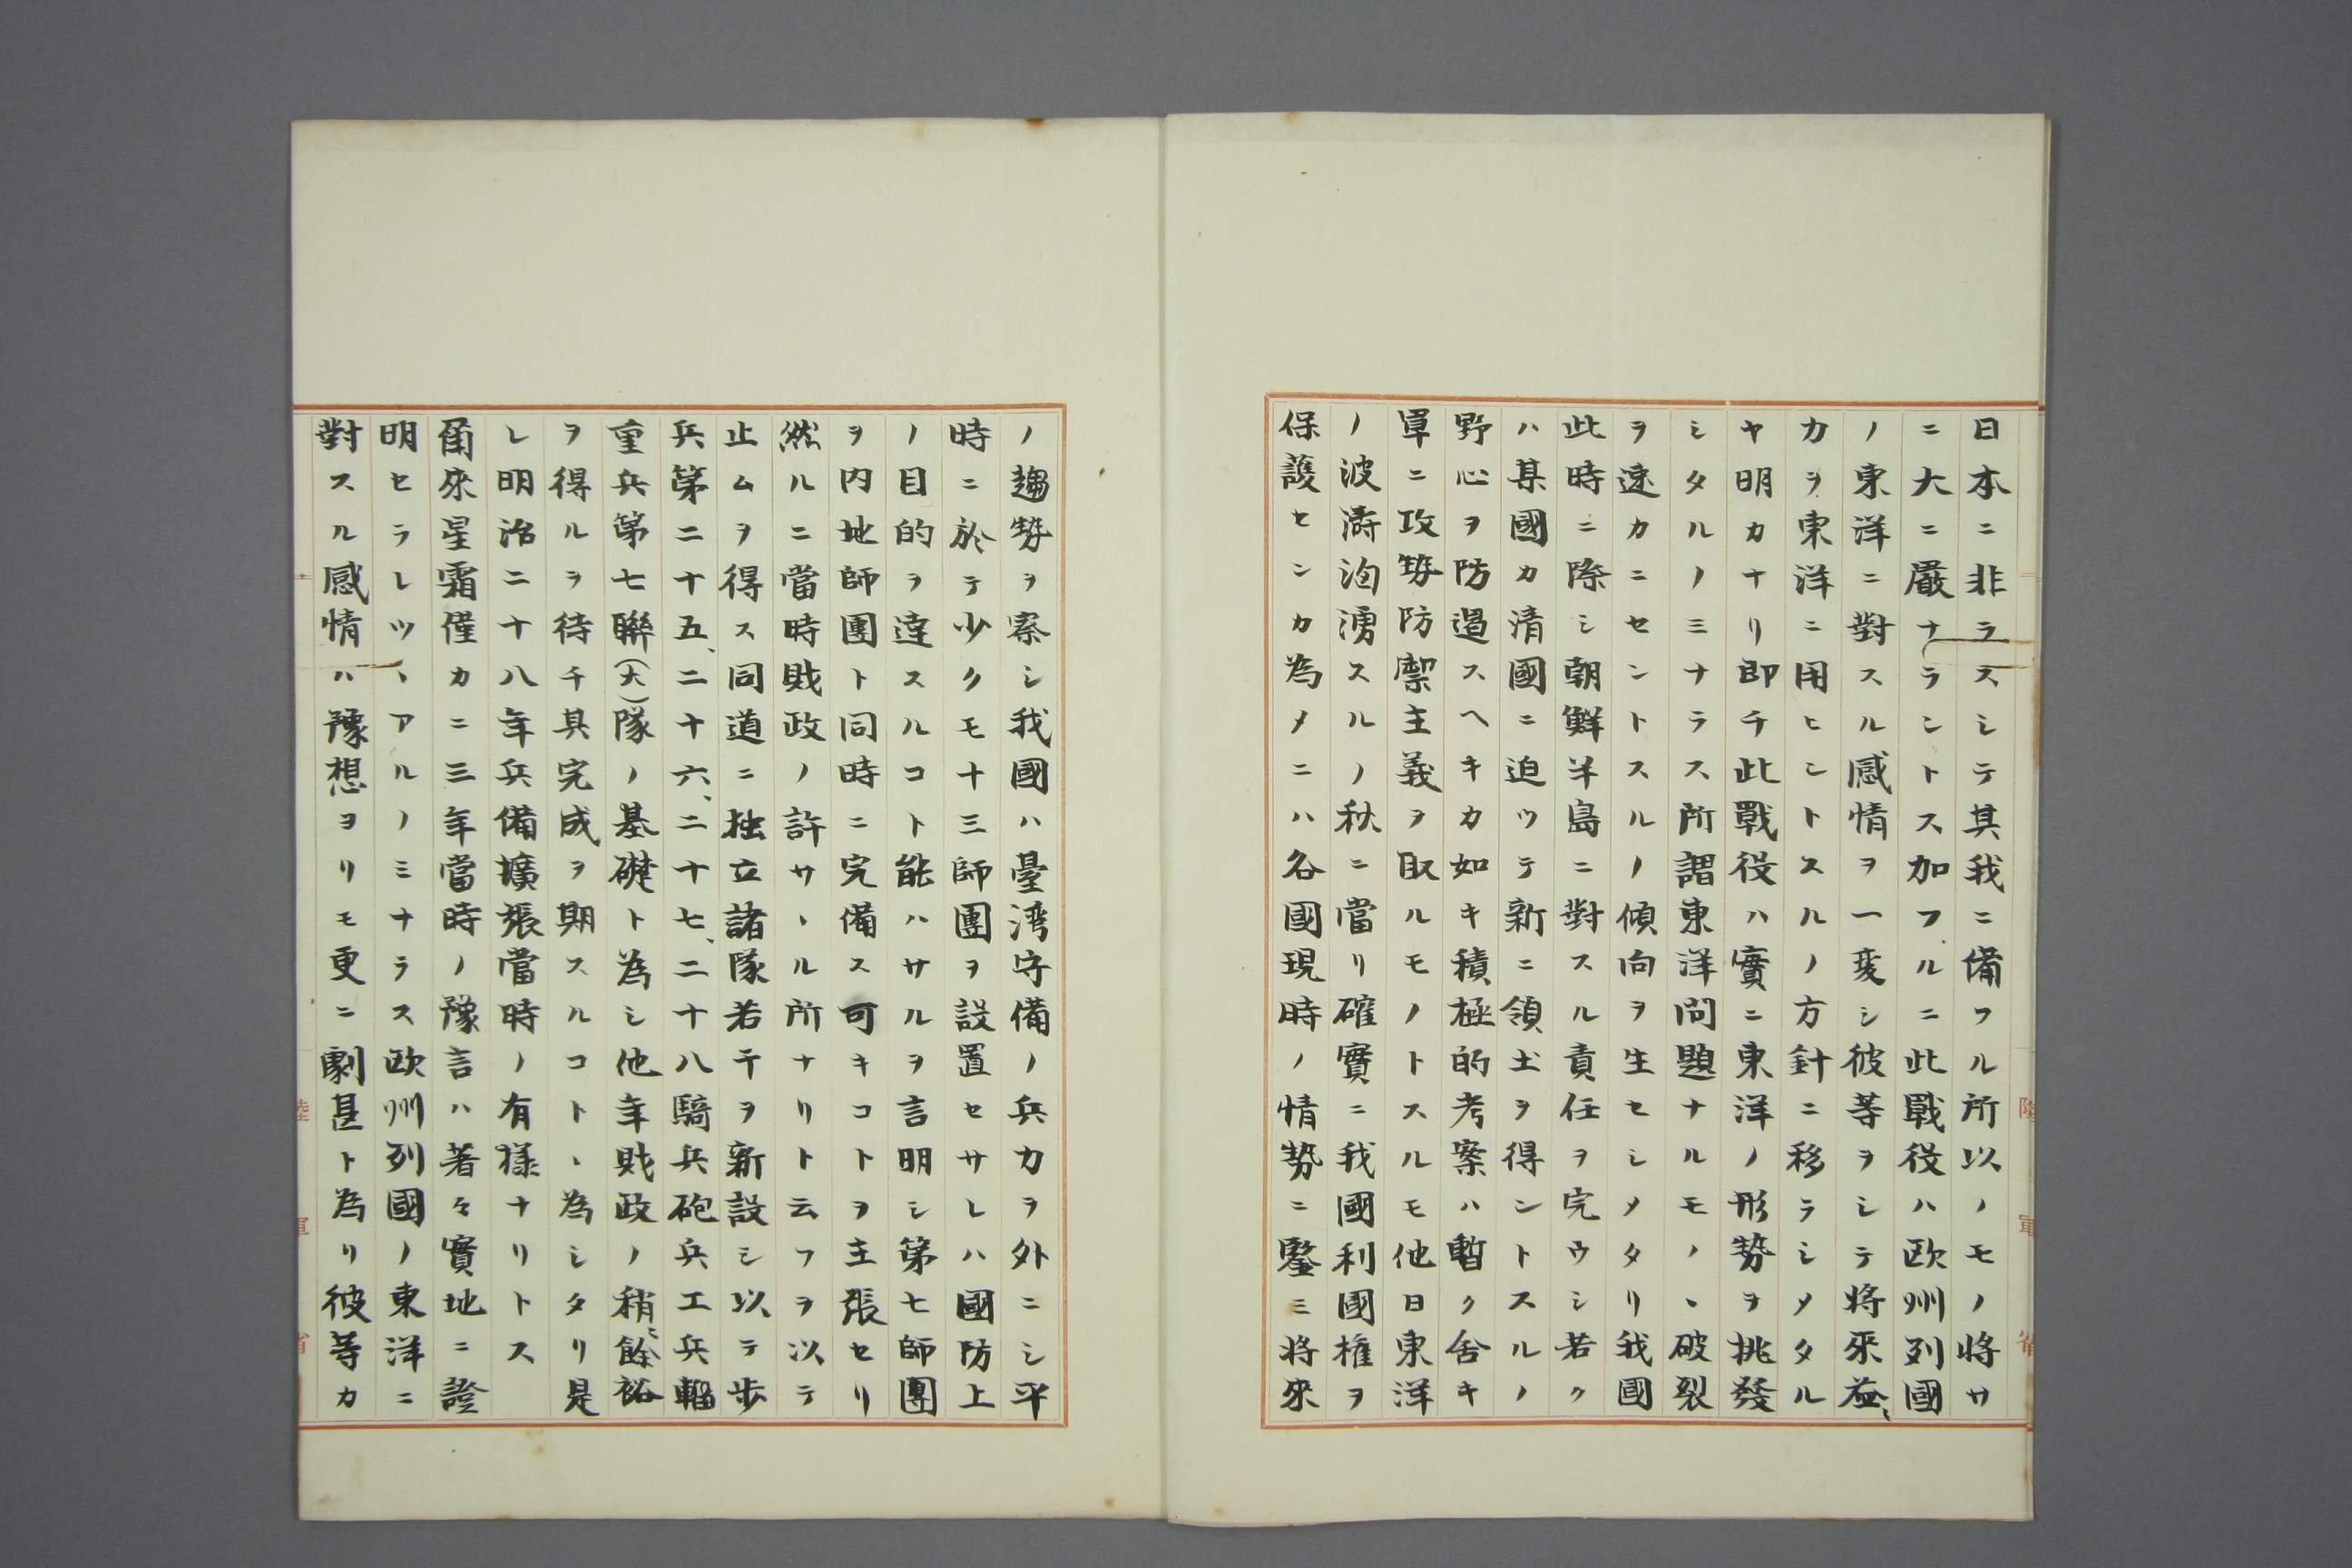 日本ニ非ラスシテ其我ニ備フル所以ノモノ將サ
ニ大ニ嚴ナラントス加フルニ此戰役ハ欧州列國
ノ東洋ニ對スル感情ヲ一変シ彼等ヲシテ將來益〻
力ヲ東洋ニ用ヒントスルノ方針ニ移ラシメタル
ヤ明カナリ即チ此戰役ハ實ニ東洋ノ形勢ヲ挑發
シタルノミナラス所謂東洋問題ナルモノヽ破裂
ヲ速カニセントスルノ傾向ヲ生セシメタリ我國
此時ニ際シ朝鮮半島ニ對スル責任ヲ完ウシ若ク
ハ某國カ清國ニ迫ツテ新ニ領土ヲ得ントスルノ
野心ヲ防遏スヘキカ如キ積極的考案ハ暫ク舎キ
單ニ攻勢防禦主義ヲ取ルモノトスルモ他日東洋
ノ波濤洶湧スルノ秋ニ當リ確實ニ我國利國権ヲ
保護センカ為メニハ各國現時ノ情勢ニ鑒ミ將來
ノ趨勢ヲ察シ我國ハ臺湾守備ノ兵力ヲ外ニシ平
時ニ於テ少クモ十三師團ヲ設置セサレハ國防上
ノ目的ヲ達スルコト能ハサルヲ言明シ第七師團
ヲ内地師團ト同時ニ完備ス可キコトヲ主張セリ
然ルニ當時財政ノ許サヽル所ナリト云フヲ以テ
止ムヲ得ス同道ニ独立諸隊若干ヲ新設シ以テ歩
兵第二十五、二十六、二十七、二十八騎兵砲兵工兵輜
重兵第七聯(大)隊ノ基礎ト為シ他年財政ノ稍〻餘裕
ヲ得ルヲ待チ其完成ヲ期スルコトヽ為シタリ是
レ明治二十八年兵備擴張當時ノ有様ナリトス
爾來星霜僅カニ三年當時ノ豫言ハ著々實地ニ證
明セラレツヽアルノミナラス欧州列國ノ東洋ニ
對スル感情ハ豫想ヨリモ更ニ劇甚ト為リ彼等カ
陸軍省